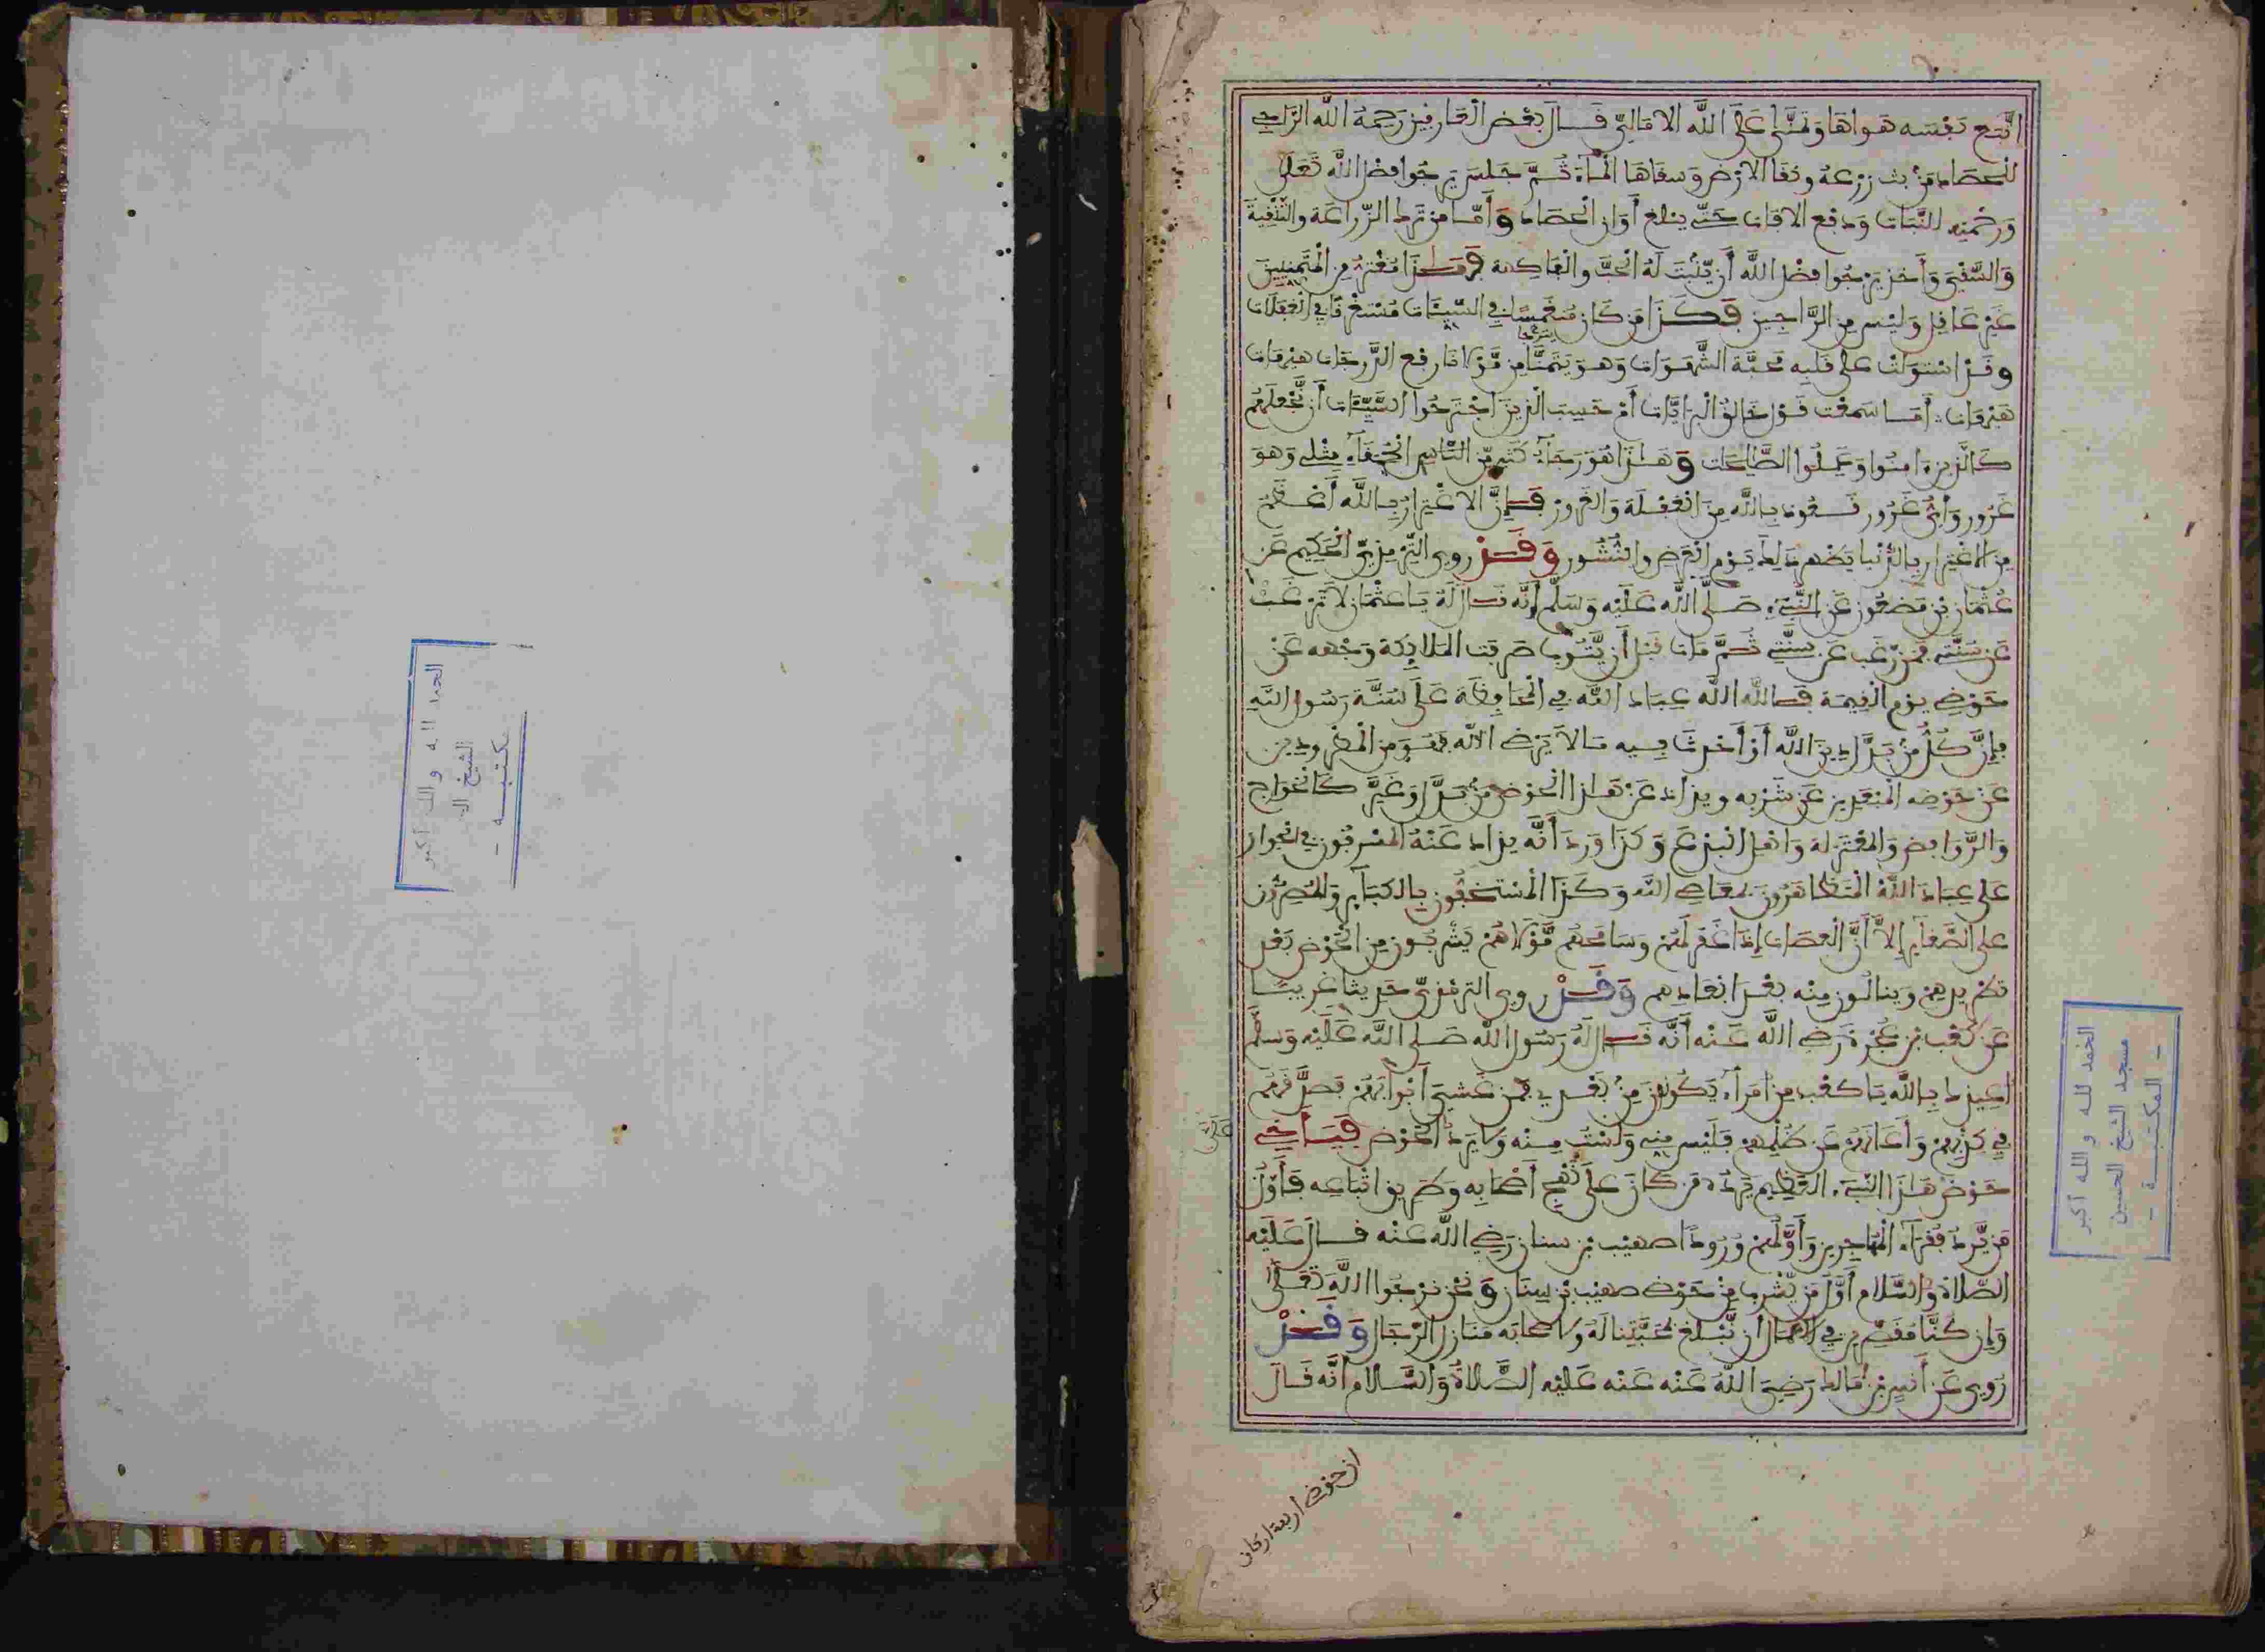 اتبع نفسه هواها وتمنى على الله الاماني قال بعض العارفين رحمه الله الراجي
للحصاد من بث زرعه ونقا الارض وسقاها الماء ثم جلس يرجوا فضل الله تعلى
ورحمته للنبات ودفع الافات حتى يبلغ أوان الحصاد وأما من ترك الزراعة والتنقية
والسقي وأخذ يرجوا فضل الله أن ينبت له الحب والفاكهة فهذا مغتر من المتمنيين
غير عافل وليس من الراجين فكذا من كان منغمسا في السيئات مستغرقا في الغفلات
وقد استولت على قلبه محبة الشهوات وهو يتمنا من مولاه أرفع الدرجات هيهات
هيهات أما سمعت قول خالق البرايات أم حسب الذين اجترحوا السيئات أن نجعلهم
كالذين ءامنوا وعملوا الصالحات وهاذا هو رجاء كثير من الناس الحمقاء مثلي وهو
غرور وأي غرور نعوذ بالله من الغفلة والغرور فإن الاغترار بالله أعظم
من الاغترار بالدنيا يظهر ذلك يوم العرض والنشور وقد روى الترمذي الحكيم عن
عثمان بن مضعون عن النبيء صلى الله عليه وسلم إنه قال له يا عثمان لا ترغب
عن سنتي فمن رغب عن سنتي ثم مات قبل أن يتوب ضربت الملايكة وجهه عن
حوضي يوم القيمة فالله الله عباد الله في المحافظة على سنة رسول الله
فإن كل من بدل دين الله أو أحدث فيه ما لا يرضي الله فهو من المطرودين
عن حوضه المبعدين عن شربه ويزاد عن هاذا الحوض من بدل أو غير كالخوارج
والروافض والمعتزلة واهل البدع وكذا ورد أنه يزاد عنه المسرفون في الجوار
على عباد الله المتظاهرون بمعاصي الله وكذا المستخفون بالكباير والمصرون
على الصغاير إلا أن العصات إذا غفر لهم وسامحهم مولاهم يشربون من الحوض بعد
تطهيرهم وينالون منه بعد ابعادهم وقد روى الترمذي حديثا غريبا
عن كعب بن عجرة رضي الله عنه أنه قال له رسول الله صلى الله عليه وسلم
اعيذك بالله يا كعب من أمراء يكونون من بعدي فمن غشي أبوابهم فصدقهم
في كذبهم وأعانهم عن ظلمهم فليس مني ولست منه ولا يرد الحوض فيا أخي
على
حوض هاذا النبيء العظيم يرده من كان على نهج أصحابه وطريق اتباعه فأول
من يرد فقراء المهاجرين وأولهم ورودا صهيب بن سنان رضي الله عنه قال عليه
الصلاة والسلام أول من يشرب من حوضي صهيب بن سنان ونحن نرجوا الله تعلى
وإن كنا مقصرين في الاعمال أن نبلغ بمحبتنا له ولاصحابه منازل الرجال وقد
روي عن أنس بن مالك رضي الله عنه عنه عليه الصلاة والسلام أنه قال
ان حوضي اربعة اركان
الحمد لله و الله أكبر
مسجد الشيخ الحسين
- المكتبـة -
الحمد لله و الله أكبر
الشيخ
مكتبـة -